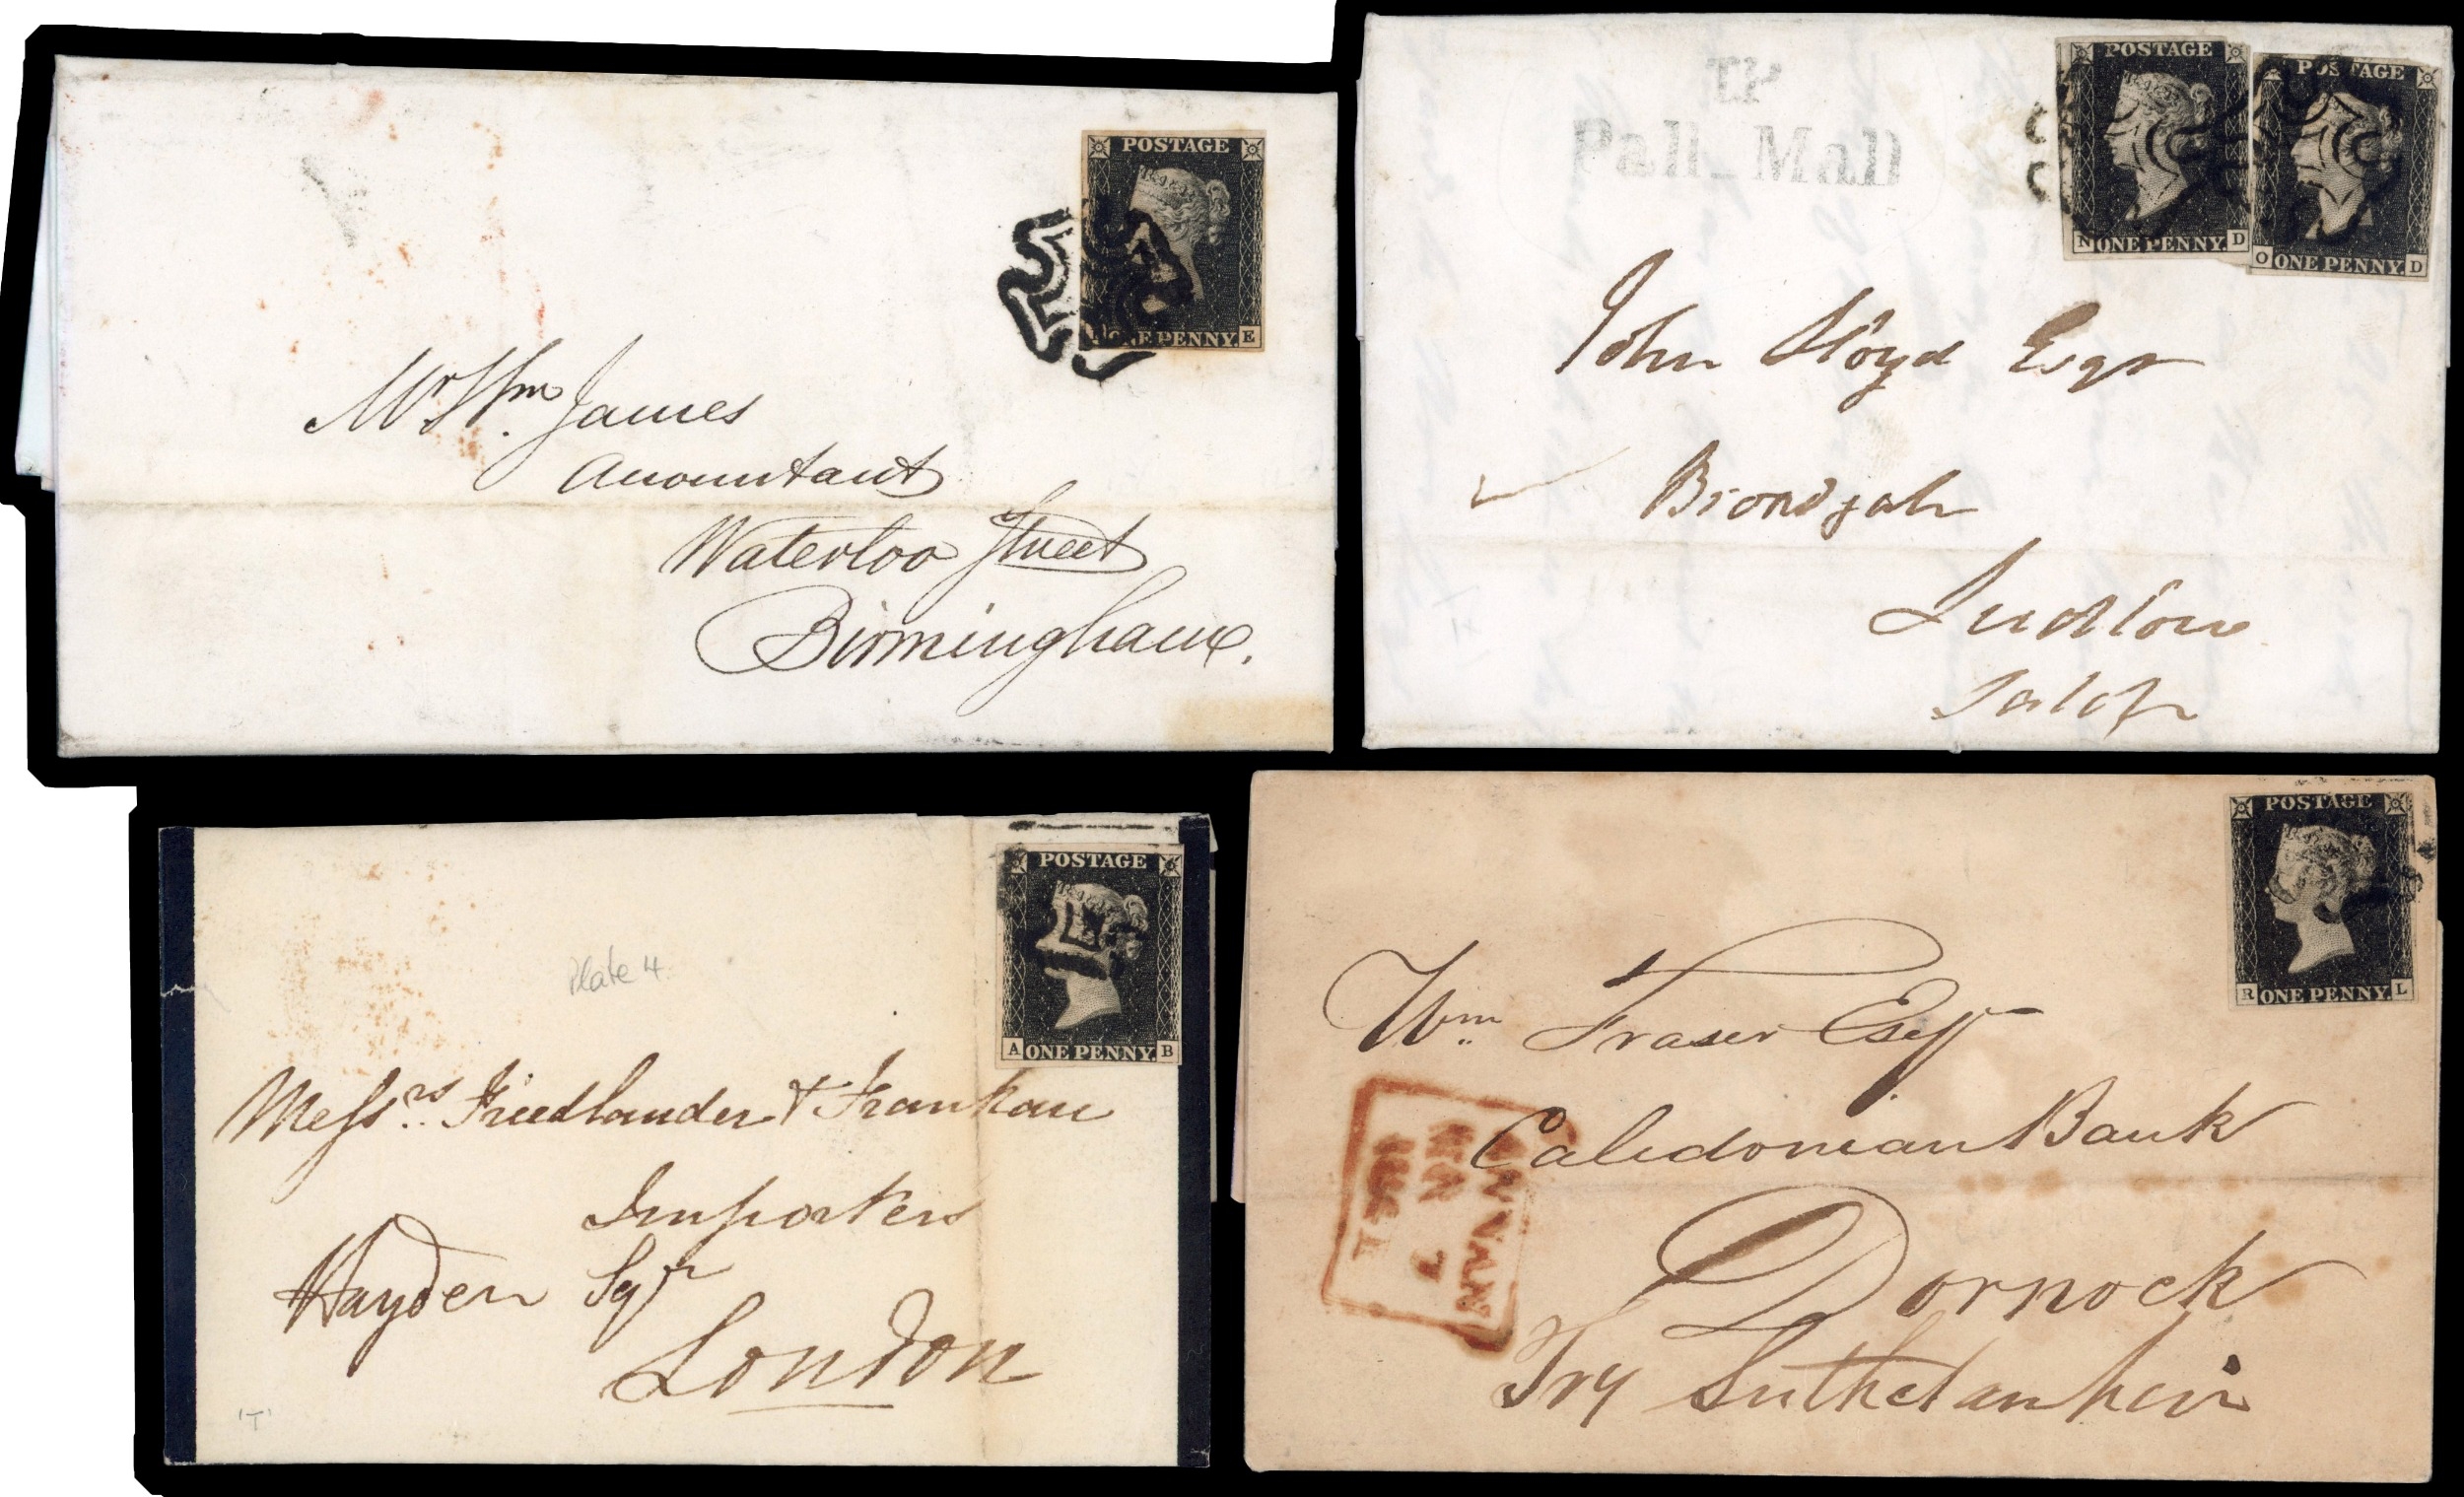 POSTAGE
ONE PENNY. E
Mr Wm James
Accountant
Waterloo Street
Birmingham.
T.P
Pall-Mall
POSTAGE
N ONE PENNY. D
POSTAGE
O ONE PENNY. D
John Lloyd Esqr
Ludlow
Salop
POSTAGE
A ONE PENNY. B
Plate 4
Messrs. Friedlander & Frankau
Importers
Hayden Sqr
London
'T'
POSTAGE
R ONE PENNY. L
Wm Fraser Esqr
Caledonian Bank
Dornock
Try